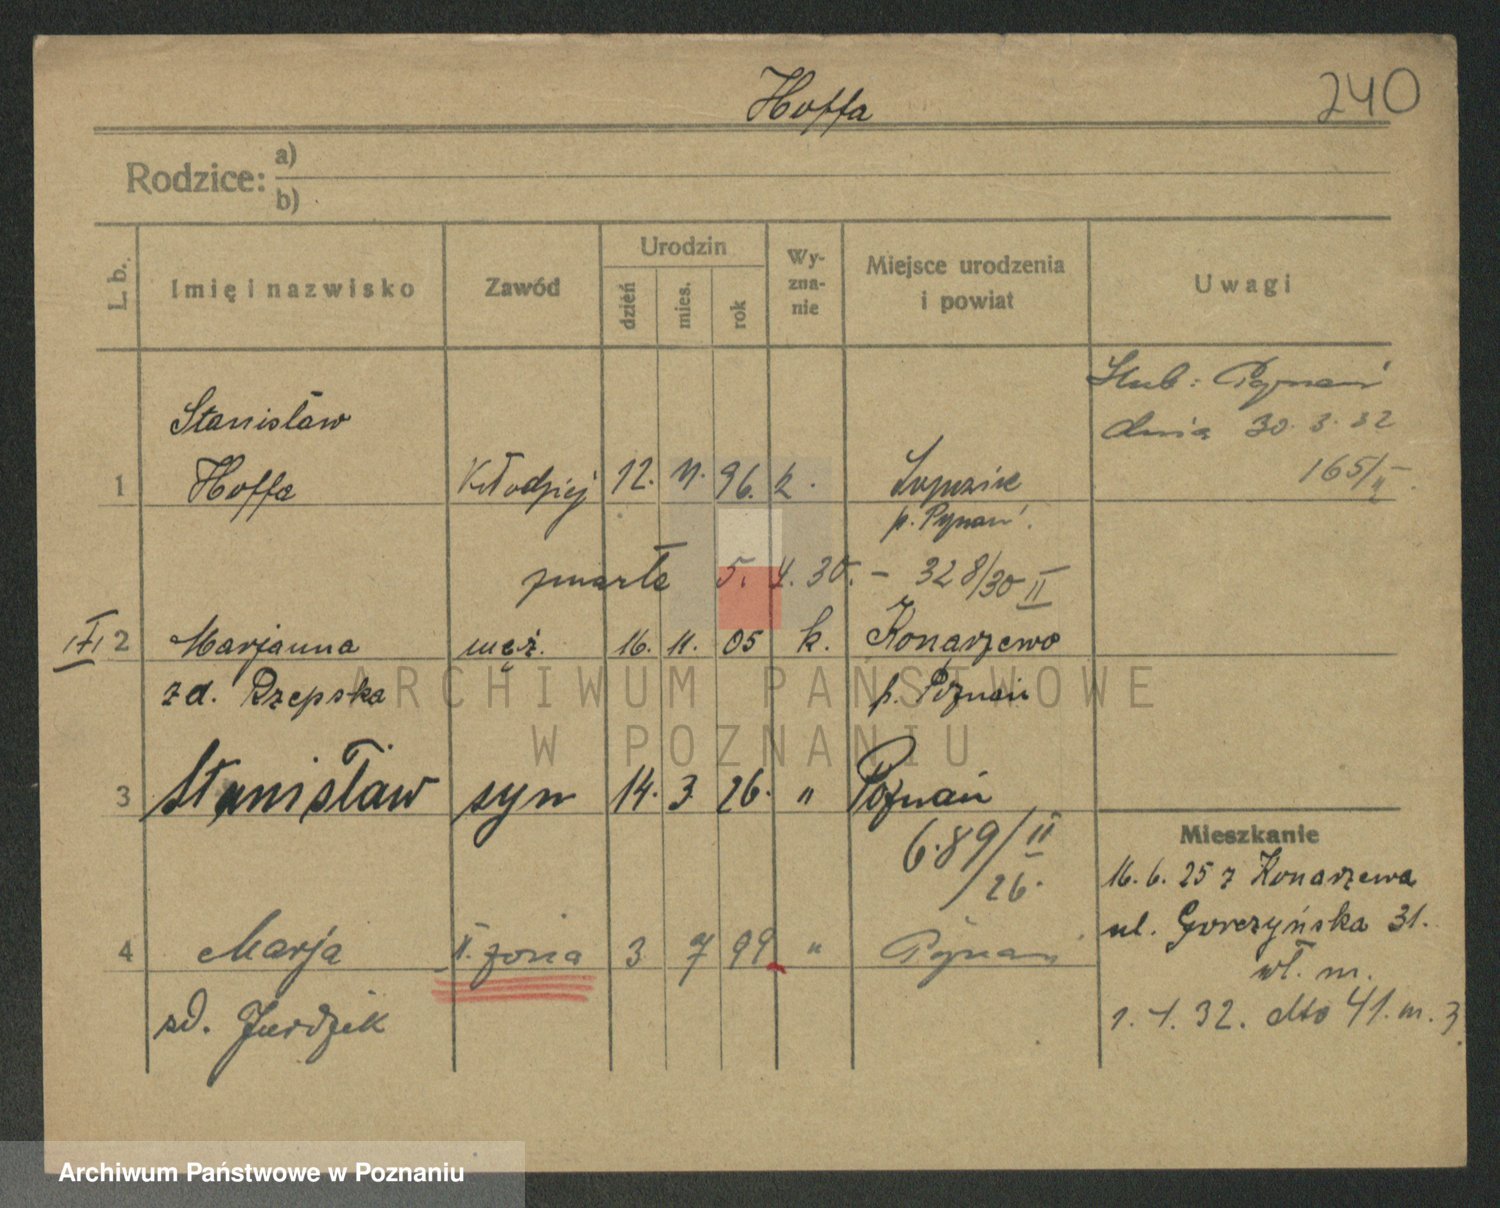 Hoffa
240
Rodzice: a)
b)
L. b.
Imię i nazwisko
Zawód
Urodzin
dzień
mies.
rok
Wy-
zna-
nie
Miejsce urodzenia
i powiat
Uwagi
Ślub: Poznań
dnia 30. 3. 32
165/II
Stanisław
1 Hoffa Kłodziej 12. 11. 96. k.
p. Poznań.
zmarła 5. 4. 30. - 328/30 II
2 Marjanna męż. 16. 11. 05 k. Konarzewo
zd. Rzepska p. Poznań
3 Stanisław syn 14. 3. 26. " Poznań
689/II
26.
4 Marja II. żona 3 7 99 " Poznań
zd. Jurdzik
Mieszkanie
16. 6. 25 z Konarzewa
ul. Gorczyńska 31.
wł. m.
1. 1. 32. dto 41. m. 3
ARCHIWUM PAŃSTWOWE
W POZNANIU
Archiwum Państwowe w Poznaniu